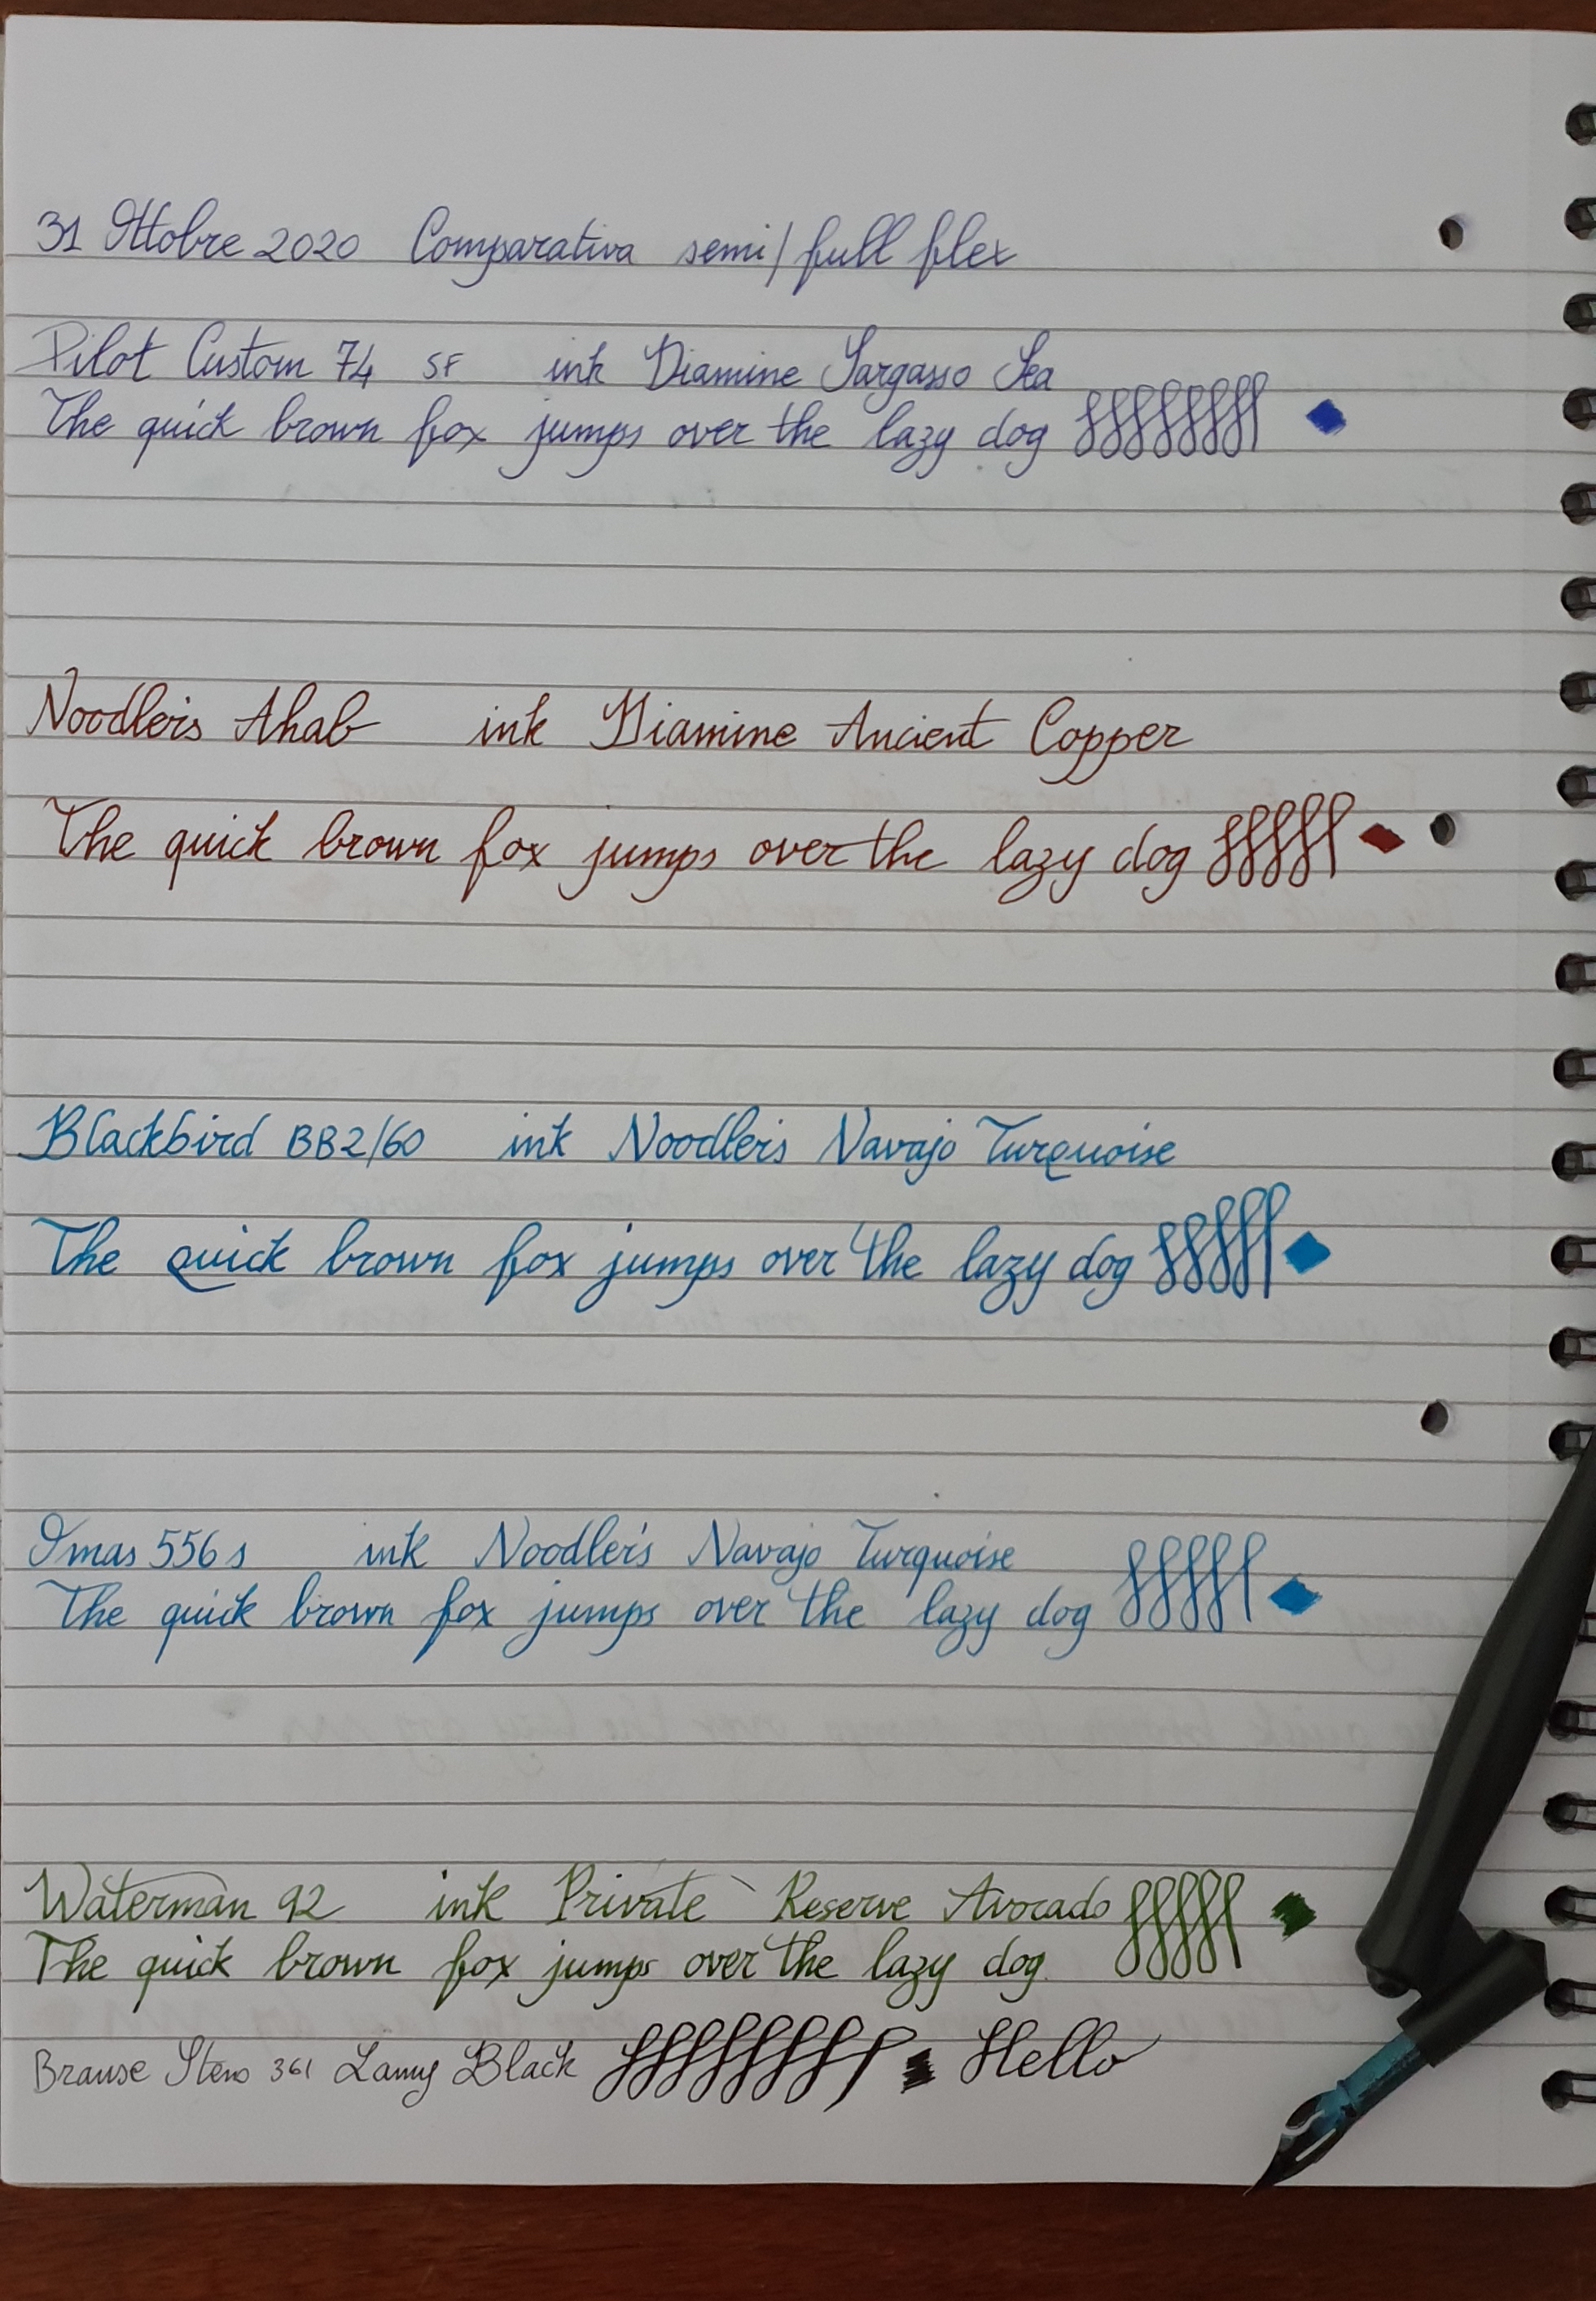 31 Ottobre 2020 Comparativa semi/full flex
Pilot Custom 74 SF ink Diamine Sargasso Sea
The quick brown fox jumps over the lazy dog
Noodler's Ahab ink Diamine Ancient Copper
The quick brown fox jumps over the lazy dog
Blackbird BB2/60 ink Noodler's Navajo Turquoise
The quick brown fox jumps over the lazy dog
Omas 556 s ink Noodler's Navajo Turquoise
The quick brown fox jumps over the lazy dog
Waterman 92 ink Private Reserve Avocado
The quick brown fox jumps over the lazy dog.
Brause Steno 361 Lamy Black Hello